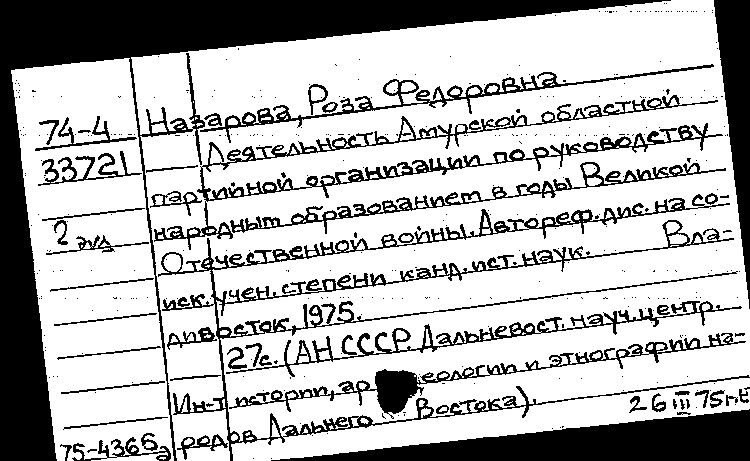 74-4 Назарова, Роза Федоровна.
33721 Деятельность Амурской областной
партийной организации по руководству
2 экз народным образованием в годы Великой
Отечественной войны. Автореф. дис. на со-
иск. учен. степени канд. ист. наук. Вла-
дивосток, 1975.
27с. (АН СССР. Дальневост. науч. центр.
Ин-т истории, ар еологии и этнографии на-
75-4365а родов Дальнего Востока).
26 III 75г.